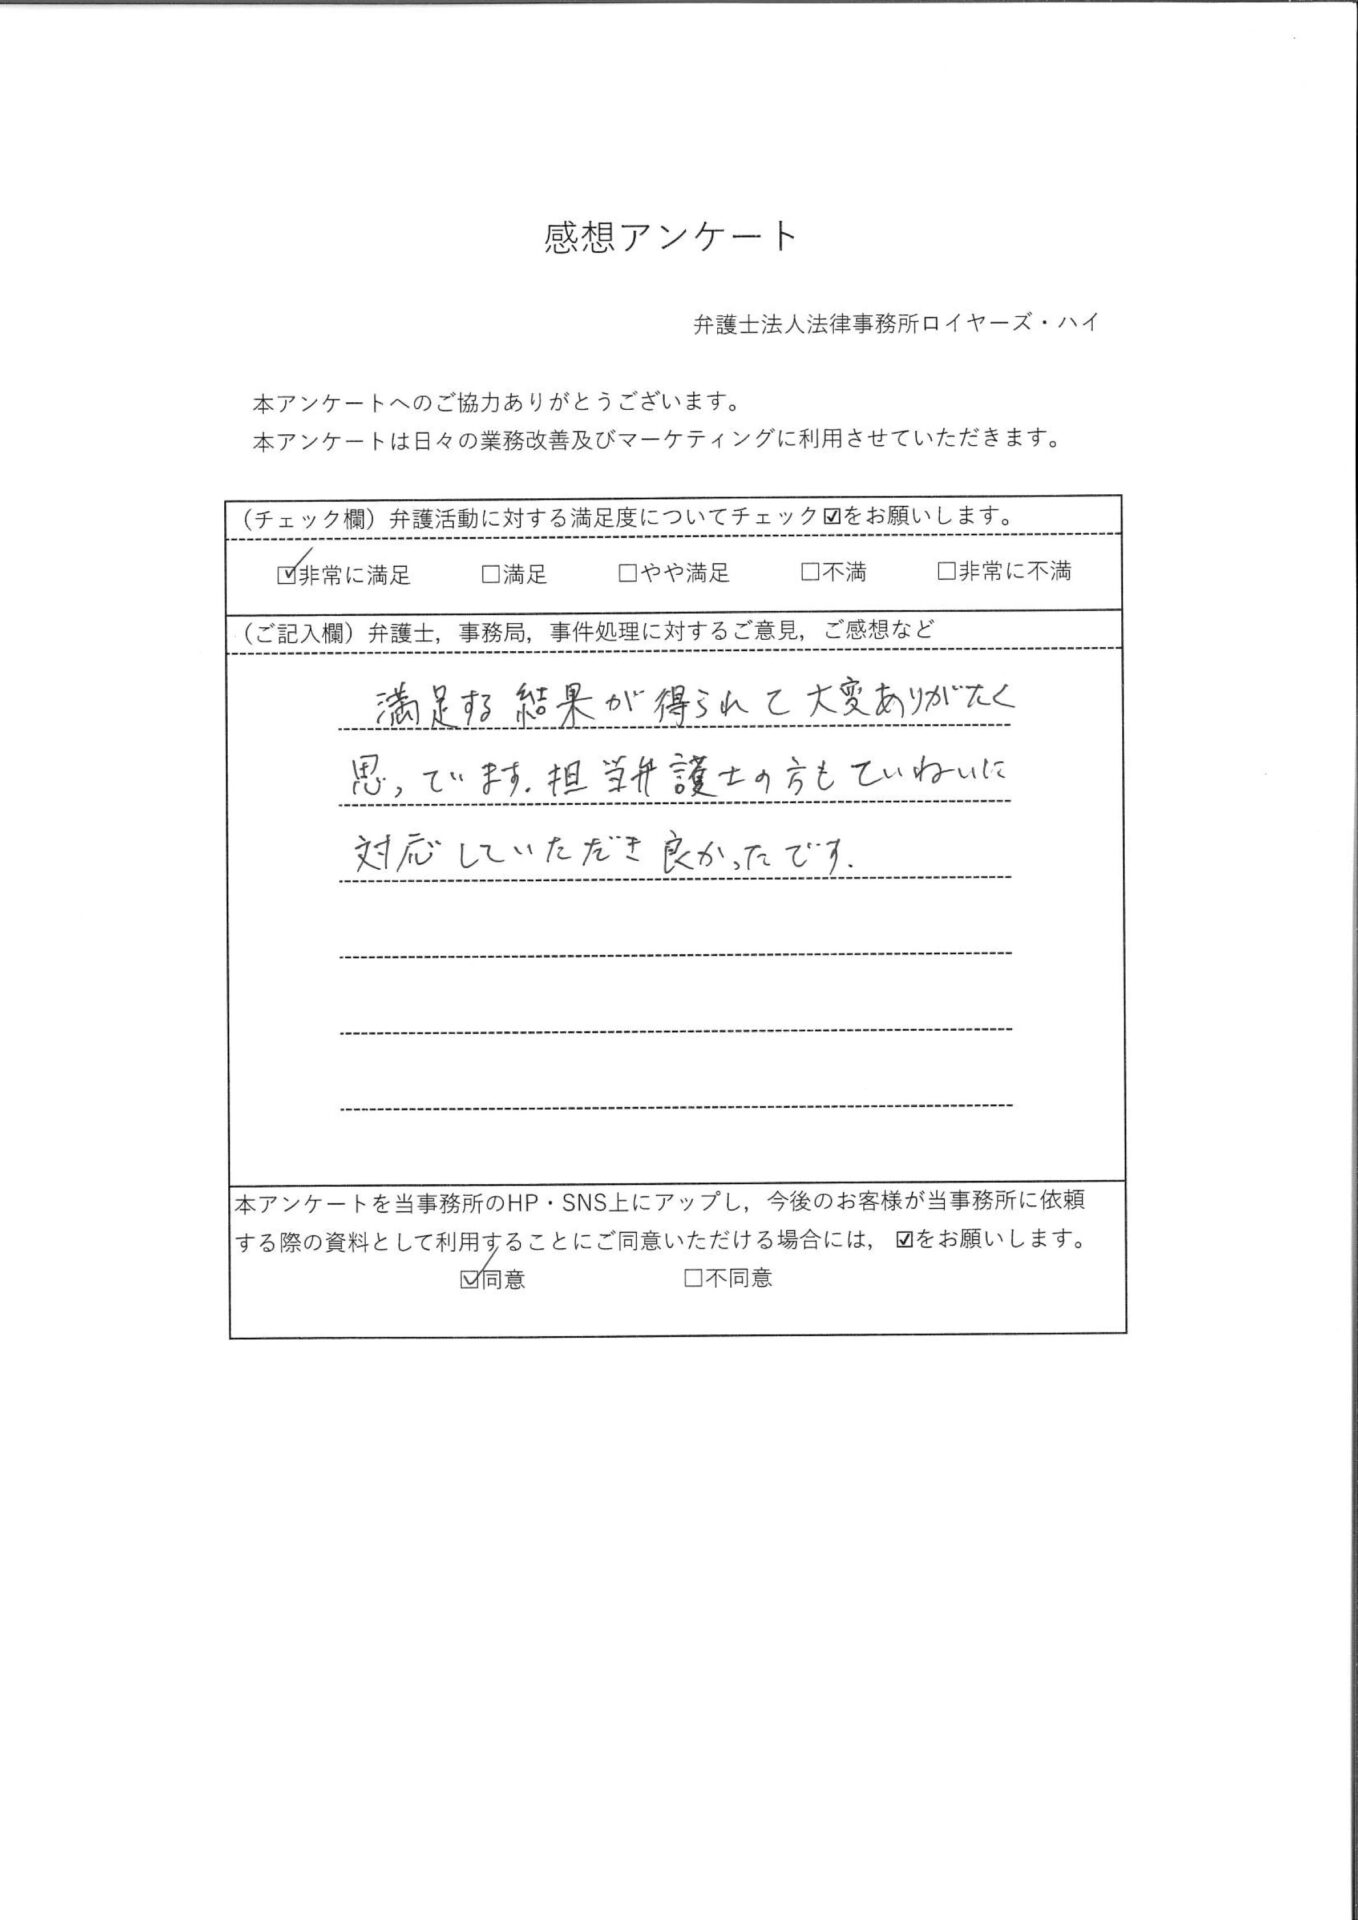 感想アンケート
弁護士法人法律事務所ロイヤーズ・ハイ
本アンケートへのご協力ありがとうございます。
本アンケートは日々の業務改善及びマーケティングに利用させていただきます。
（チェック欄）弁護活動に対する満足度についてチェック☑をお願いします。
☑非常に満足 □満足 □やや満足 □不満 □非常に不満
（ご記入欄）弁護士，事務局，事件処理に対するご意見，ご感想など
満足する結果が得られて大変ありがたく
思っています．担当弁護士の方もていねいに
対応していただき良かったです．
本アンケートを当事務所のHP・SNS上にアップし，今後のお客様が当事務所に依頼
する際の資料として利用することにご同意いただける場合には，☑をお願いします。
☑同意 □不同意